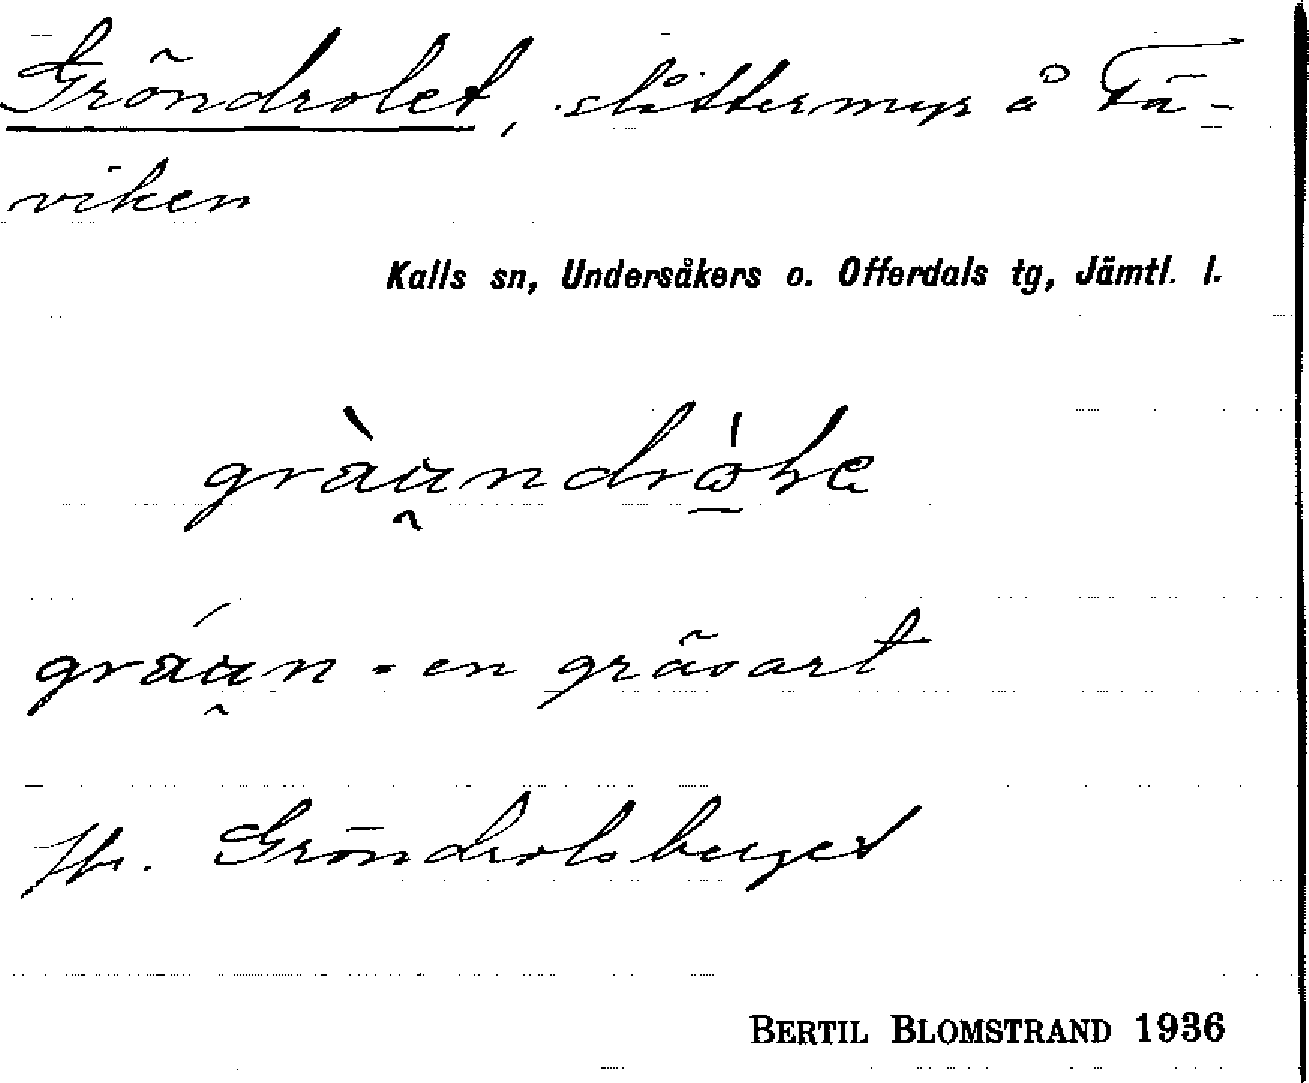 Gröndrolet, slåttermyr å Fä-
viken
Kalls sn, Undersåkers o. Offerdals tg, Jämtl. l.
gràu̯ndrò̠ƚe
gráu̯n = en gräsart
Jfr. Gröndrolsberget
BERTIL BLOMSTRAND 1936